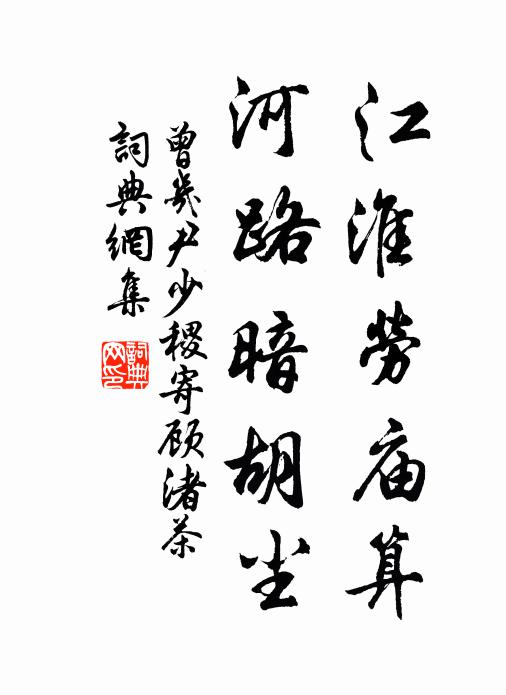 江淮劳庙算
河路暗胡尘
曾幾尹少稷寄顾渚茶
詞典網集
詞典网印